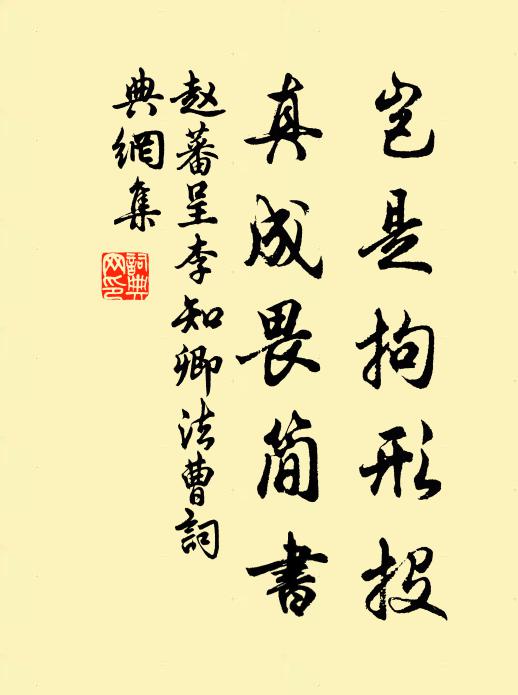 岂是拘形投
真成畏简书
赵蕃呈李知卿法曹詞
典網集
詞典
网印